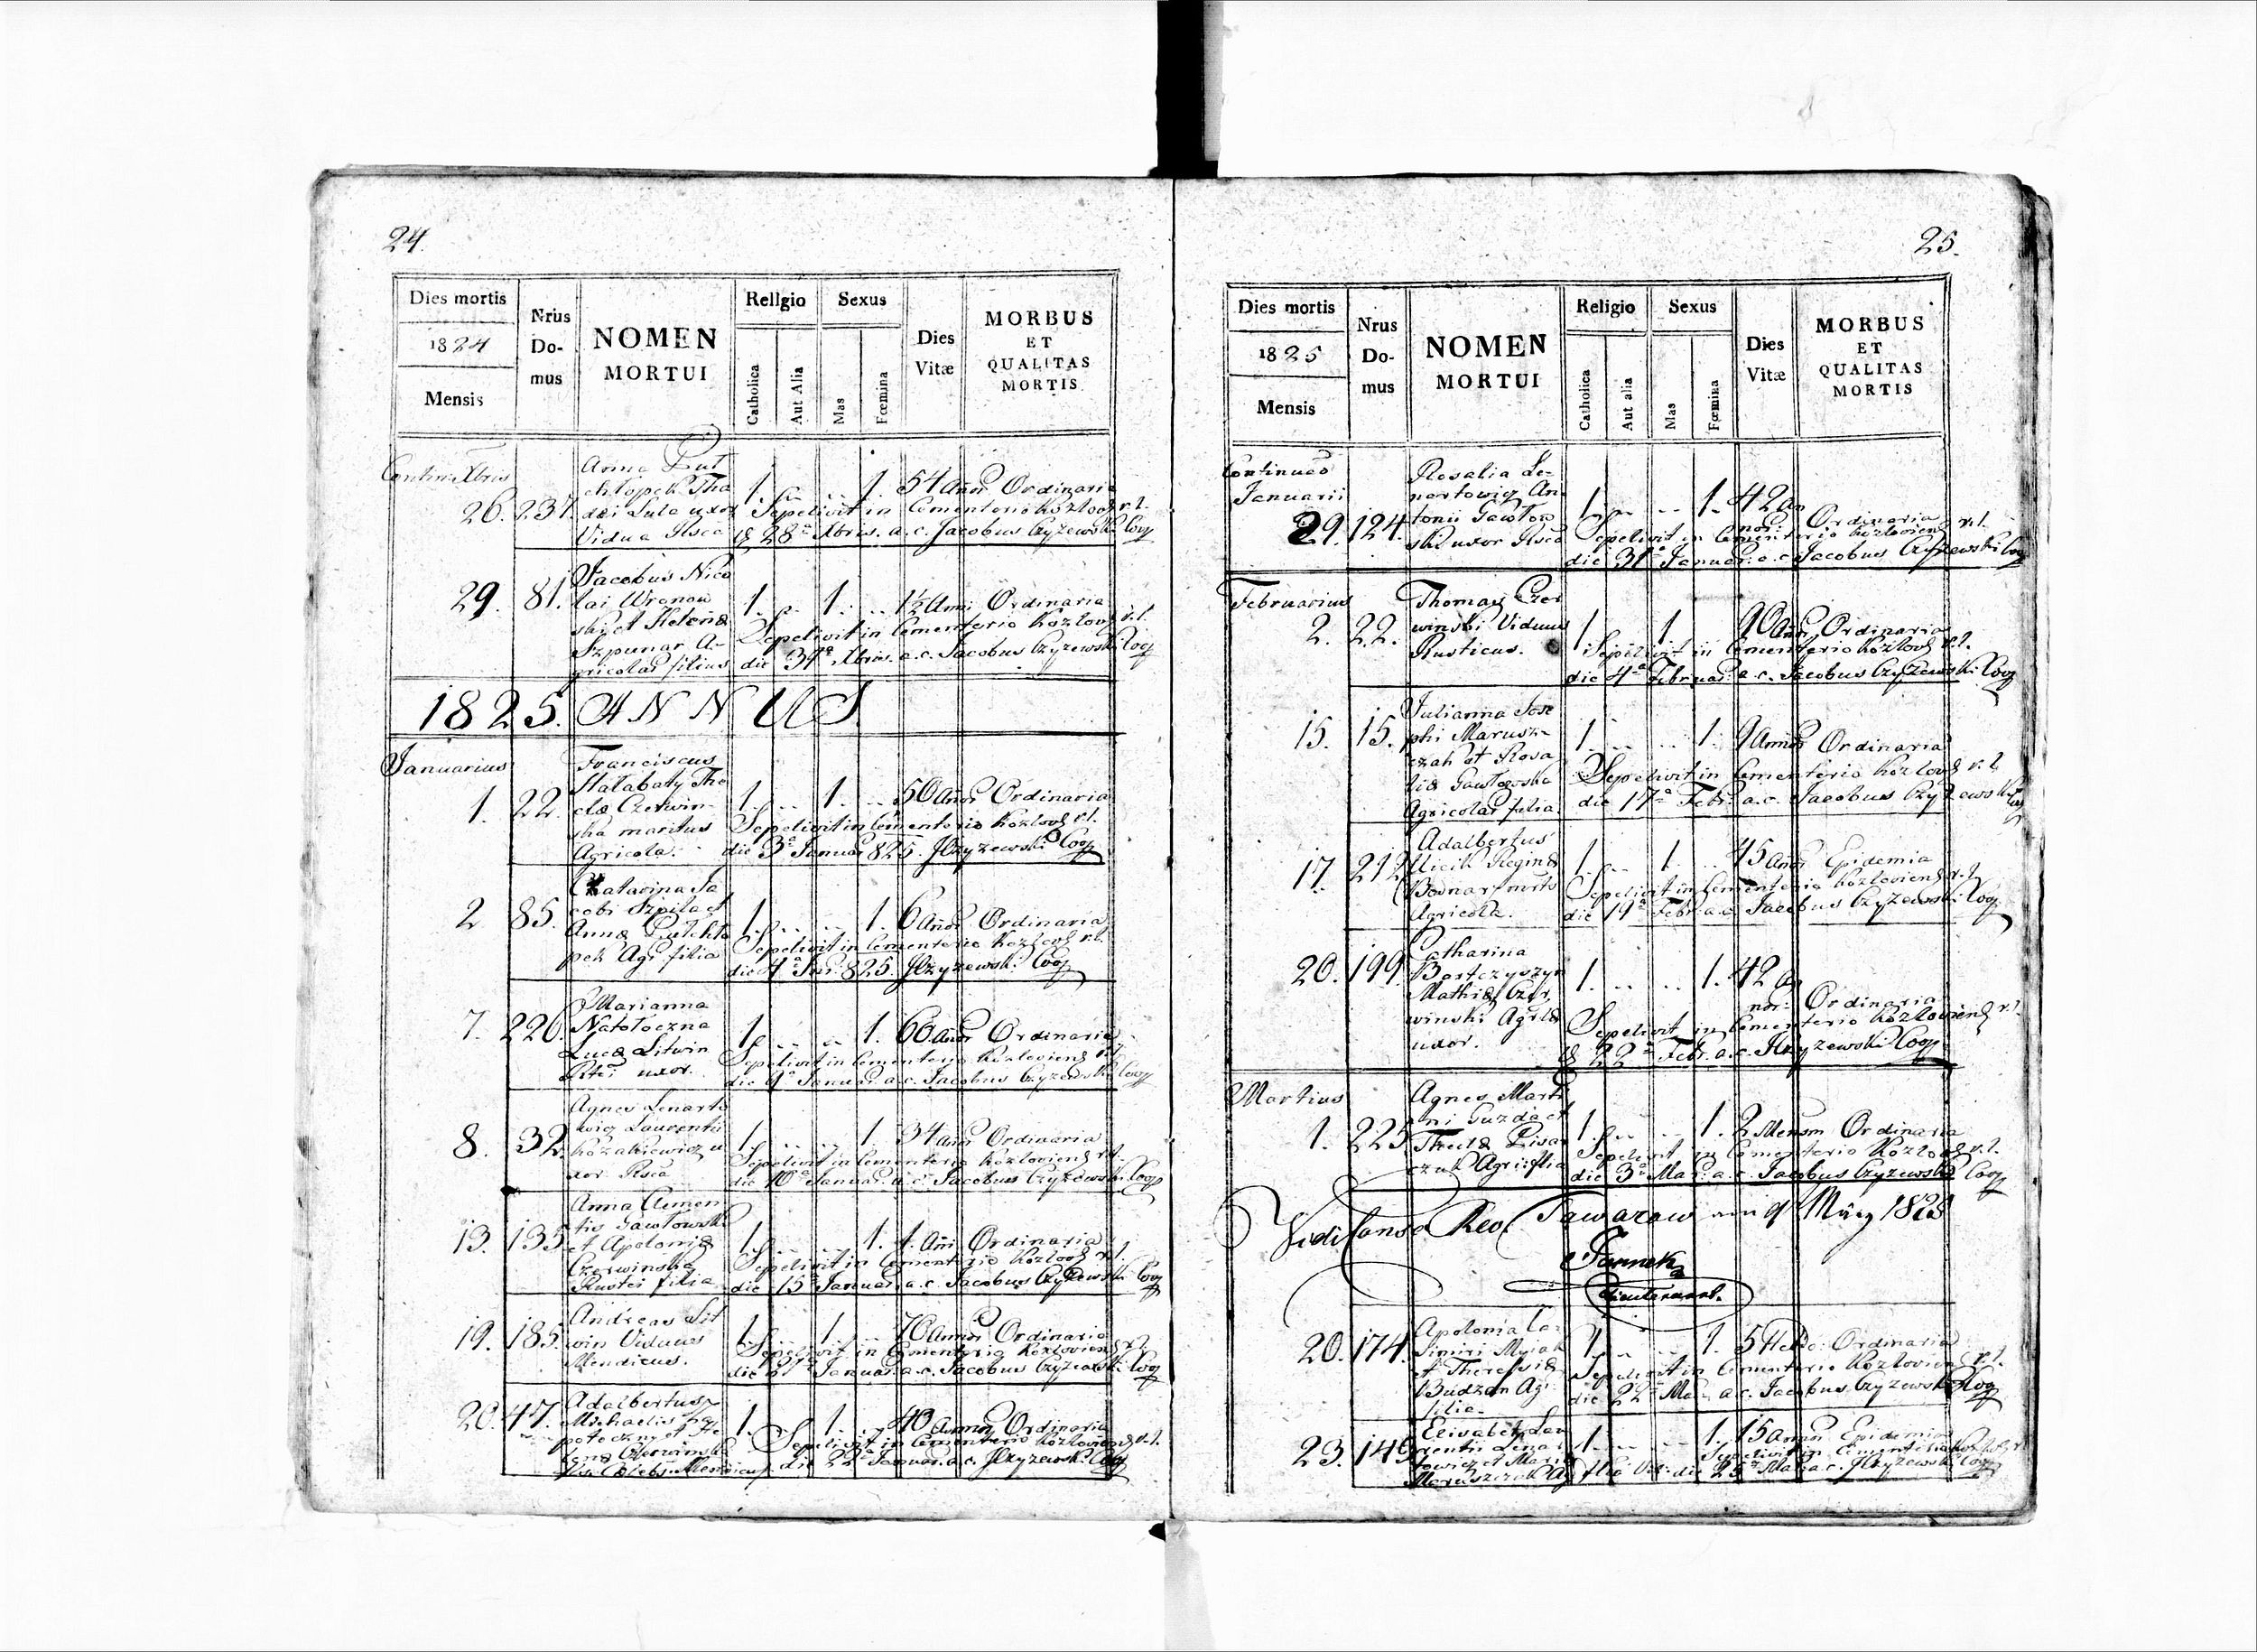 24.
Dies mortis
1824
Mensis
Nrius
Do-
mus
NOMEN
MORTUI
Religio
Catholica
Aut Alia
Sexus
Mas
Fœmina
Dies
Vitæ
MORBUS
ET
QUALITAS
MORTIS
Contin: Xbris
26. 237.
Anna
chłopek Tha
dei Lula uxor
Vidua
1. 1. 54 Anor Ordinaria
Sepelivit in Cementerio Kozlov r.l.
28ª Xbris. a.c. Jacobus Czyzewski Coop
29. 81.
Jacobus Nico
lai Wronow
ski et Helenæ
Szpunar A-
gricolar filius
1. 1. 1½ Anni Ordinaria
Sepelivit in Cementerio Kozlov r.l.
die 31ª Xbris. a.c. Jacobus Czyzewski Coop
1825. ANNUS
Januarius
1. 22.
Franciscus
Hałabaty The
clæ Czerwin-
ska maritus
Agricola.
1. 1. 50 Anor Ordinaria
Sepelivit in Cementerio Kozlov r.l.
die 3ª Januar 825. JCzyzewski Coop
2 85.
Catarina Ja
cobi Szpila et
Annæ Putchło
pek Agr filia
1. 1. 6 Anor Ordinaria
Sepelivit in Cementerio Kozlov r.l.
die 4ª Jan: 825. JCzyzewski Coop
7. 220.
Marianna
Natołoczna
Lucæ Litwin
uxor.
1. 1. 60 Anor Ordinaria
Sepelivit in Cementerio Kozloviens r.l.
die 9ª Januar. a.c. Jacobus Czyzewski Coop
8. 32.
Agnes Lenarto
wicz Laurentii
Kozakiewicz u
xor
1. 1. 34 Anor Ordinaria
Sepelivit in Cementerio Kozloviens r.l.
die 10ª Januar. a.c. Jacobus Czyzewski Coop
13. 135
Anna Clemen
tis Gawłowski
et Apoloniæ
Czerwinska
Rustei filia
1. 1. 1. Ani Ordinaria
Sepelivit in Cementerio Kozlov r.l.
die 15ª Januar. a.c. Jacobus Czyzewski Coop
19. 185.
Andreas Lit
win Viduus
Mendicus.
1. 1. 70 Annor Ordinaria
Sepelivit in Cementerio Kozloviens r.l.
die 21ª Januar. a.c. Jacobus Czyzewski Coop
20. 47.
Adalbertus
Michaelis
et He
lenæ Czerwinska
1. 1. 40 Annor Ordinaria
Sepelivit in Cementerio Kozloviens r.l.
die 22ª Januar. a.c. JCzyzewski Coop
25.
Dies mortis
1825
Mensis
Nrus
Do-
mus
NOMEN
MORTUI
Religio
Catholica
Aut alia
Sexus
Mas
Fœmina
Dies
Vitæ
MORBUS
ET
QUALITAS
MORTIS
Continuaõ
Januarii
29. 124.
Rosalia Le-
nartowicz An-
tonii Gawłow
ski uxor
1. 1. 42 an
nor: Ordinaria
Sepelivit in Cementerio Kozloviens r.l.
die 31ª Januar: a.c. Jacobus Czyzewski Coop
Februarius
2. 22.
Thomas Czer
winski Viduus
Rusticus.
1 1 90 Anor Ordinaria
Sepelivit in Cementerio Kozlov r.l.
die 4ª Februar: a.c. Jacobus Czyzewski Coop
15. 15.
Julianna Jose
phi Marusz-
czak et Rosa
liæ Gawłowska
Agricolar filia.
1. 1. 9 Annor Ordinaria
Sepelivit in Cementerio Kozlov r.l.
die 17ª Febr: a.c. Jacobus Czyzewski Coop
17. 212
Adalbertus
Reginæ
Bodnar
Agricola.
1. 1 45 Anor Epidemia
Sepelivit in Cementerio Kozloviens r.l.
die 19ª Febr: a.c. Jacobus Czyzewski Coop
20. 199.
Catharina
Bartczyszyn
Mathiæ Czer
winski Agrlæ
uxor.
1. 1. 42 an
nor: Ordinaria
Sepelivit in Cementerio Kozloviens r.l.
22ª Febr: a.c. JCzyzewski Coop
Martius
1. 225
Agnes Marti
ni Guzda et
Theclæ Pisar
czuk Agri: filia
1. 1. 2 Mensm Ordinaria
Sepelivit in Cementerio Kozlov r.l.
die 3ª Mar: a.c. Jacobus Czyzewski Coop
Vidi Censo Reo am 9 März 1825
20. 174.
Apolonia Ca-
simiri Mysiak
et Theressiæ
Budzan Agr:
filia.
1. 1. 5 Ordinaria
Sepelivit in Cementerio Kozloviens r.l.
die 22ª Mar: a.c. Jacobus Czyzewski Coop
23. 149
Elisabeth Lau
rentii Lenar
towicz et Mari
Maruszczak
1. 1. 15 Epidemia
Sepelivit in Cementerio
filia die 25ª Mar: a.c. JCzyzewski Coop